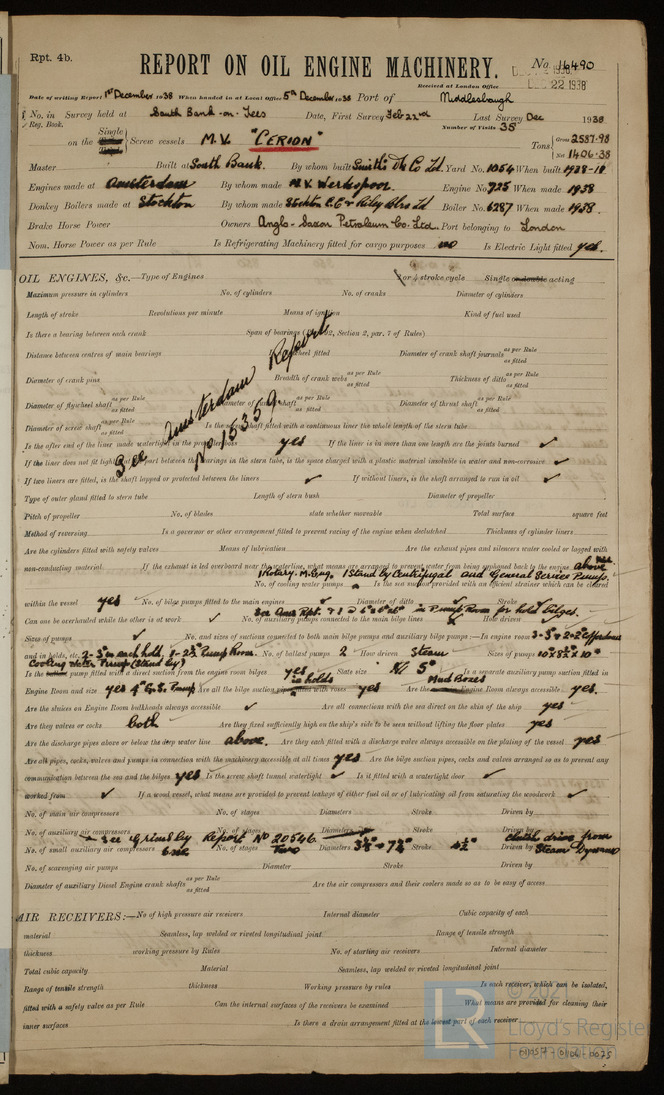 Rpt. 4b.
REPORT ON OIL ENGINE MACHINERY.
No. 16490
Received at London Office DEC 22 1938
Date of writing Report 1st December 1938 When handed in at Local Office 5th December 1938 Port of Middlesbrough
No. in Survey held at South Bank-on-Tees Date, First Survey Feb 22nd Last Survey Dec 1938
Reg. Book. Number of Visits 35
on the Single Screw vessels M.V. "CERION" Tons Gross 2587.98 Net 1406.38
Master Built at South Bank. By whom built Smith's Dk Co Ld. Yard No. 1054 When built 1938-11
Engines made at Amsterdam By whom made N.V. Werkspoor. Engine No. 725 When made 1938
Donkey Boilers made at Stockton By whom made Stockton C.E & Riley Blrs Ld Boiler No. 6287 When made 1938.
Brake Horse Power Owners Anglo-Saxon Petroleum Co. Ltd. Port belonging to London
Nom. Horse Power as per Rule Is Refrigerating Machinery fitted for cargo purposes no Is Electric Light fitted yes.
OIL ENGINES, &c.—Type of Engines or 4 stroke cycle Single or double acting
Maximum pressure in cylinders No. of cylinders No. of cranks Diameter of cylinders
Length of stroke Revolutions per minute Means of ignition Kind of fuel used
Is there a bearing between each crank Span of bearings Section 2, par. 7 of Rules)
Distance between centres of main bearings wheel fitted Diameter of crank shaft journals as per Rule as fitted
Diameter of crank pins Breadth of crank webs as per Rule as fitted Thickness of ditto as per Rule as fitted
Diameter of flywheel shaft as per Rule as fitted Diameter of shaft as per Rule as fitted Diameter of thrust shaft as per Rule as fitted
See Amsterdam Report No 15359
Diameter of screw shaft as per Rule as fitted Is the screw shaft fitted with a continuous liner the whole length of the stern tube
Is the after end of the liner made watertight in the propeller boss yes If the liner is in more than one length are the joints burned ✓
If the liner does not fit tightly at the part between the bearings in the stern tube, is the space charged with a plastic material insoluble in water and non-corrosive ✓
If two liners are fitted, is the shaft lapped or protected between the liners ✓ If without liners, is the shaft arranged to run in oil ✓
Type of outer gland fitted to stern tube Length of stern bush Diameter of propeller
Pitch of propeller No. of blades state whether moveable Total surface square feet
Method of reversing Is a governor or other arrangement fitted to prevent racing of the engine when declutched Thickness of cylinder liners
Are the cylinders fitted with safety valves Means of lubrication Are the exhaust pipes and silencers water cooled or lagged with
non-conducting material If the exhaust is led overboard near the waterline, what means are arranged to prevent water from being syphoned back to the engine above
1 Rotary. M.Eng. 1 Stand by Centrifugal and General Service Pump.
No. of cooling water pumps Is the sea suction provided with an efficient strainer which can be cleared
within the vessel yes No. of bilge pumps fitted to the main engines ✓ Diameter of ditto ✓ Stroke
Can one be overhauled while the other is at work ✓ No. of auxiliary pumps connected to the main bilge lines How driven
in Pump Room for hold bilges.
Sizes of pumps No. and sizes of suctions connected to both main bilge pumps and auxiliary bilge pumps :—In engine room
and in holds, etc. 2-3" in each hold, 1-2½" Pump Room. No. of ballast pumps 2 How driven Steam Sizes of pumps
Cooling water Pump (Stand by)
Is the pump fitted with a direct suction from the engine room bilges yes State size 5" Is a separate auxiliary pump suction fitted in
in holds Mud Boxes
Engine Room and size yes 4" G.S. Pump Are all the bilge suction pipes fitted with roses yes Are the Engine Room always accessible yes.
Are the sluices on Engine Room bulkheads always accessible ✓ Are all connections with the sea direct on the skin of the ship yes
Are they valves or cocks both Are they fixed sufficiently high on the ship's side to be seen without lifting the floor plates yes
Are the discharge pipes above or below the deep water line above. Are they each fitted with a discharge valve always accessible on the plating of the vessel yes
Are all pipes, cocks, valves and pumps in connection with the machinery accessible at all times yes Are the bilge suction pipes, cocks and valves arranged so as to prevent any
communication between the sea and the bilges yes Is the screw shaft tunnel watertight ✓ Is it fitted with a watertight door ✓
worked from ✓ If a wood vessel, what means are provided to prevent leakage of either fuel oil or of lubricating oil from saturating the woodwork ✓
No. of main air compressors No. of stages Diameters Stroke Driven by
No. of auxiliary air compressors No. of stages Diameters Stroke Driven by
See Grimsby Report No 20546 clutch drive from
No. of small auxiliary air compressors one No. of stages Two Diameters Stroke 4½" Driven by Steam Dynamo
No. of scavenging air pumps Diameter Stroke
Diameter of auxiliary Diesel Engine crank shafts as per Rule as fitted Are the air compressors and their coolers made so as to be easy of access
AIR RECEIVERS:—No of high pressure air receivers Internal diameter Cubic capacity of each
material Seamless, lap welded or riveted longitudinal joint Range of tensile strength
thickness working pressure by Rules No. of starting air receivers Internal diameter
Total cubic capacity Material Seamless, lap welded or riveted longitudinal joint
Range of tensile strength thickness Working pressure by rules Is each receiver, which can be isolated,
fitted with a safety valve as per Rule Can the internal surfaces of the receivers be examined What means are provided for cleaning their
inner surfaces Is there a drain arrangement fitted at the lowest part of each receiver
LR
Lloyd's Register
Foundation